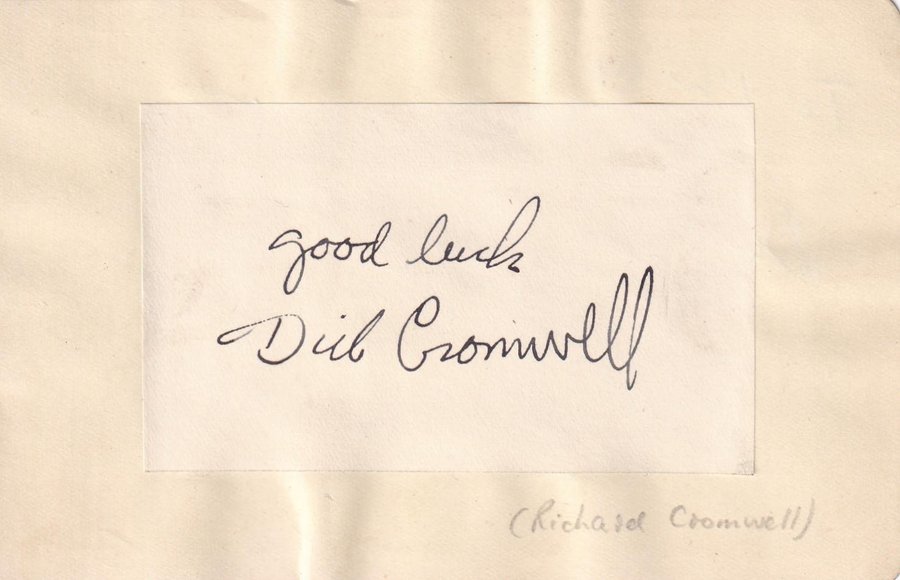 good luck
Dick Cromwell
(Richard Cromwell)